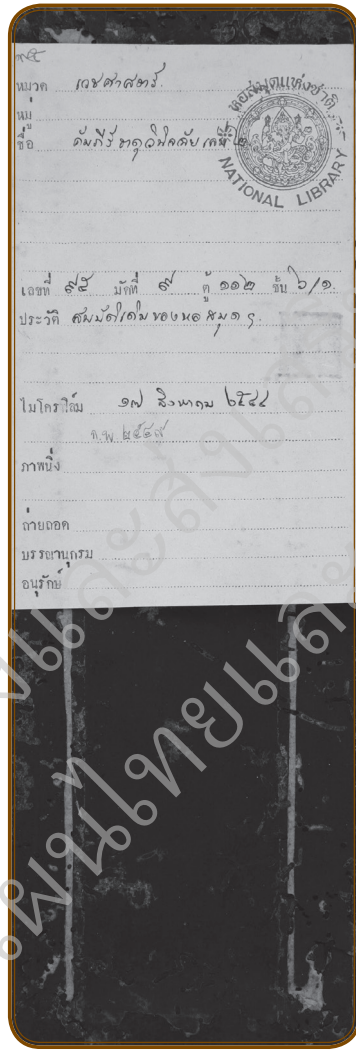 ๙๕
หมวด เวชศาสตร์
หมู่
ชื่อ คัมภีร์ธาตุวินิจฉัย เลขที่ ๒
หอสมุดแห่งชาติ
NATIONAL LIBRARY
เลขที่ ๙๕ มัดที่ ๙ ตู้ ๑๑๒ ชั้น ๖/๑
ประวัติ สมบัติเดิมของหอสมุด ฯ
ไมโครฟิล์ม ๑๗ สิงหาคม ๒๕๔๔
ก.พ. ๒๕๔๙
ภาพนิ่ง
ถ่ายถอด
บรรณานุกรม
อนุรักษ์